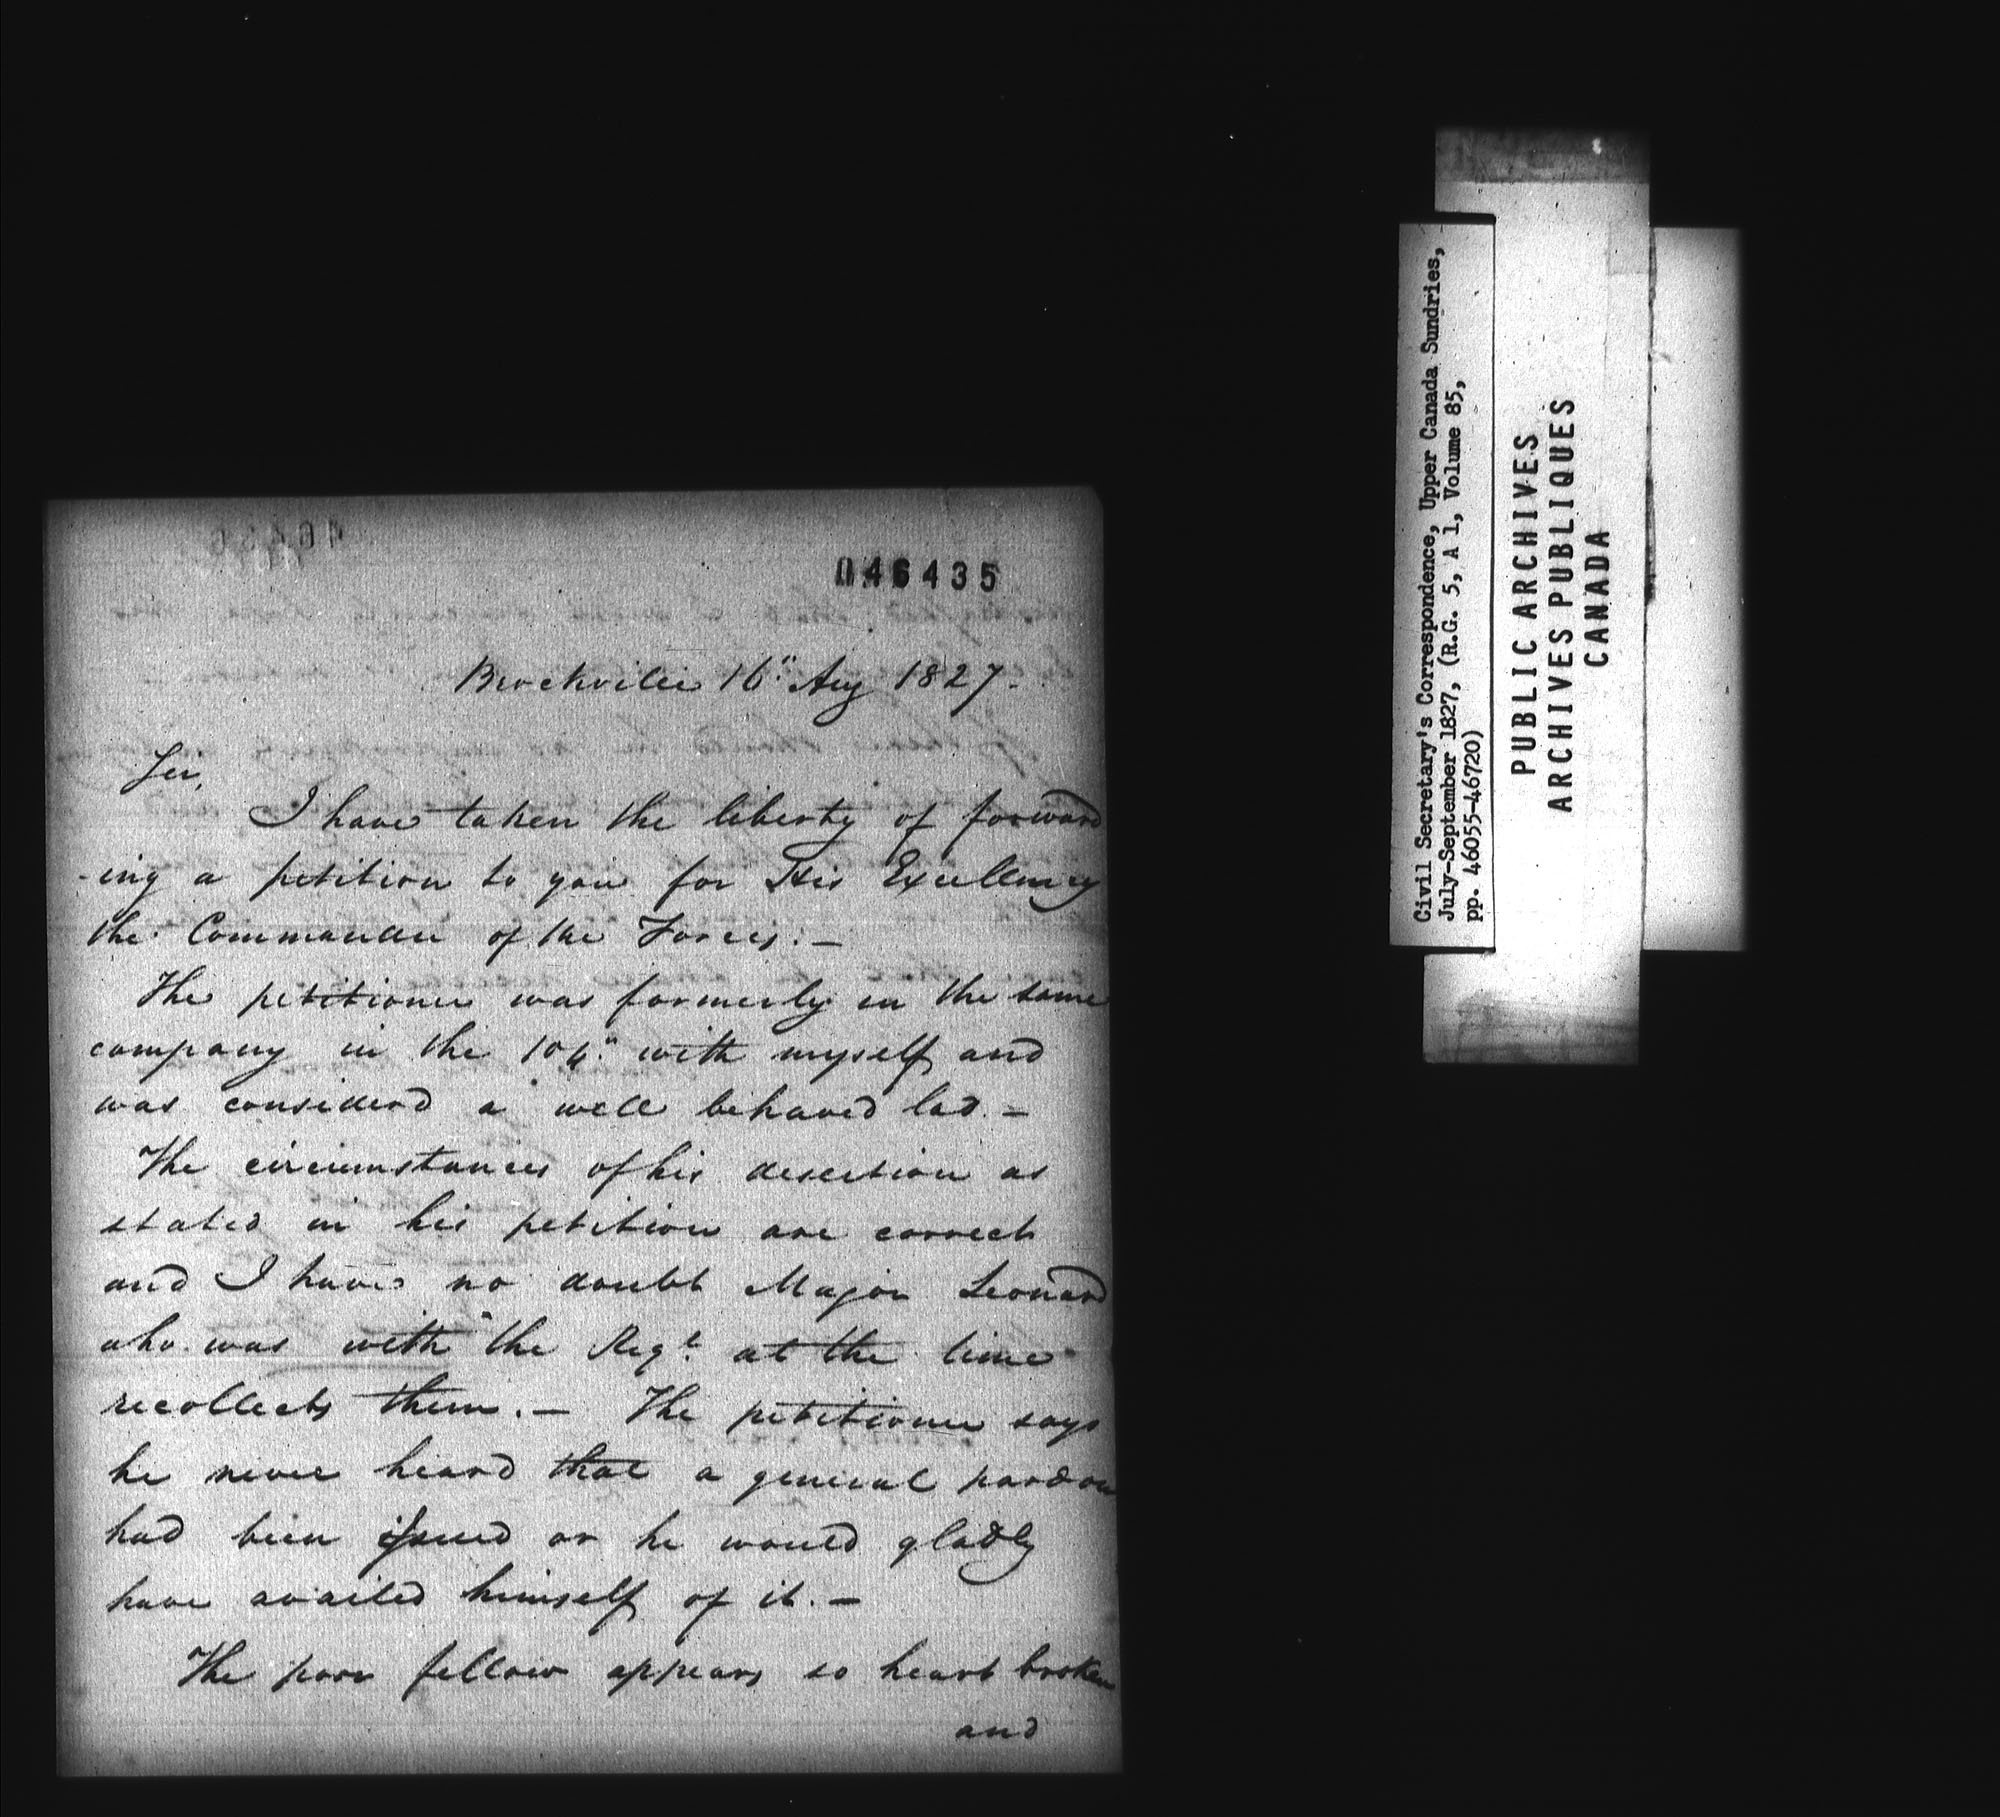 046435
Brockville 16" Aug 1827.
Sir,
I have taken the liberty of forward
-ing a petition to you for His Excellency
the Commander of the Forces. —
The petitioner was formerly in the same
company in the 104" with myself and
was considerd a well behaved lad. —
The circumstances of his desertion as
stated in his petition are correct
and I have no doubt Major Leonard
who was with the Regt. at the time
recollects them. — The petitioner says
he never heard that a general pardon
had been issued or he would gladly
have availed himself of it. —
The poor fellow appears so heart broken
and
Civil Secretary's Correspondence, Upper Canada Sundries,
July-September 1827, (R.G. 5, A 1, Volume 85,
pp. 46055-46720)
PUBLIC ARCHIVES
ARCHIVES PUBLIQUES
CANADA